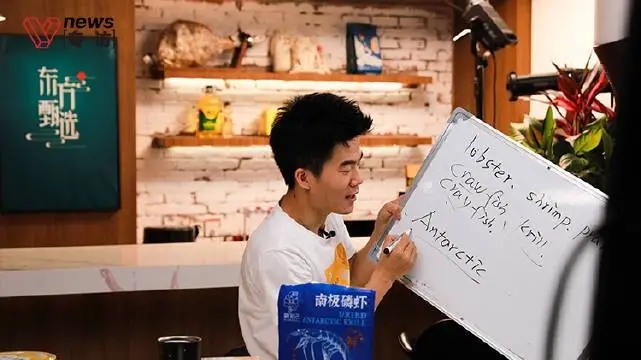 news
专访
东方
甄选
lobster. shrimp. pra
crawfish
crayfish. krill.
Antarctic
南极磷虾
ANTARCTIC KRILL